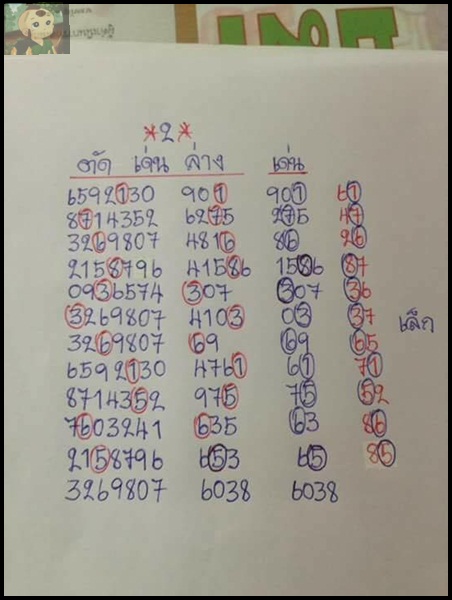 *2*
ตัด เด่น ล่าง เด่น
6592130 901 901 61
8714352 6275 275 47
3269807 4816 86 26
2158796 41586 1586 87
0936574 307 307 36
3269807 4103 03 37
เล็ก
3269807 69 69 65
6592130 4761 61 71
8714352 975 75 52
7603241 635 63 86
2158796 653 65 85
3269807 6038 6038